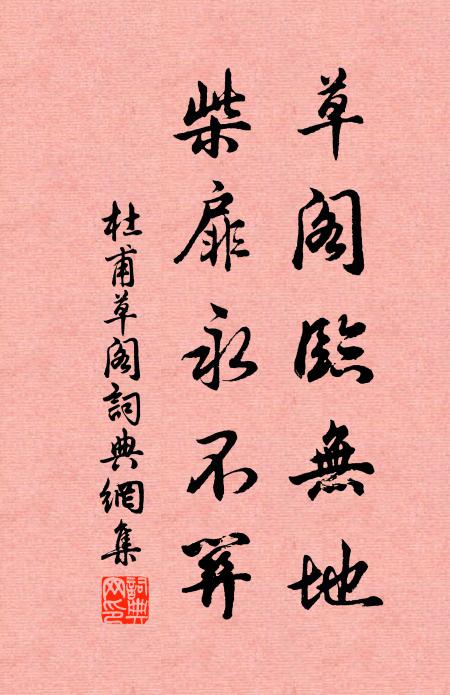 草閣臨無地
柴扉永不關
杜甫草閣詞典網集
詞典网印